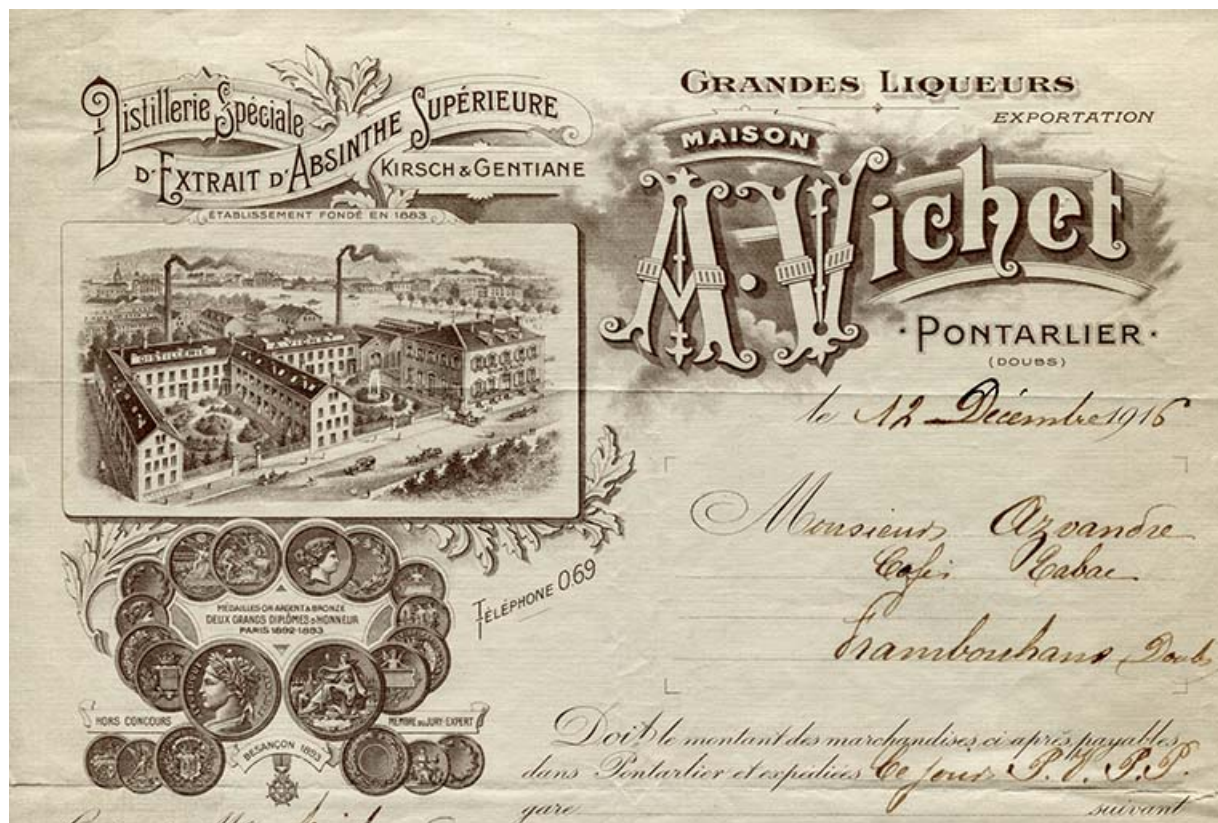 Distillerie Spéciale
D'Extrait d'Absinthe Supérieure
Kirsch & Gentiane
ÉTABLISSEMENT FONDÉ EN 1883
DISTILLERIE
A. VICHET
GRANDES LIQUEURS
EXPORTATION
MAISON
A. Vichet
· PONTARLIER ·
(DOUBS)
le 12 Décembre 1916
Monsieur Arvandre
Café Tabac
Frambouhans Doubs
TÉLÉPHONE 0.69
MÉDAILLES OR ARGENT & BRONZE
DEUX GRANDS DIPLÔMES D'HONNEUR
PARIS 1892-1893
HORS CONCOURS
MEMBRE DU JURY-EXPERT
BESANÇON 1893
Doit le montant des marchandises ci après, payables
dans Pontarlier et expédiées ce jour P. V. P.P.
gare suivant